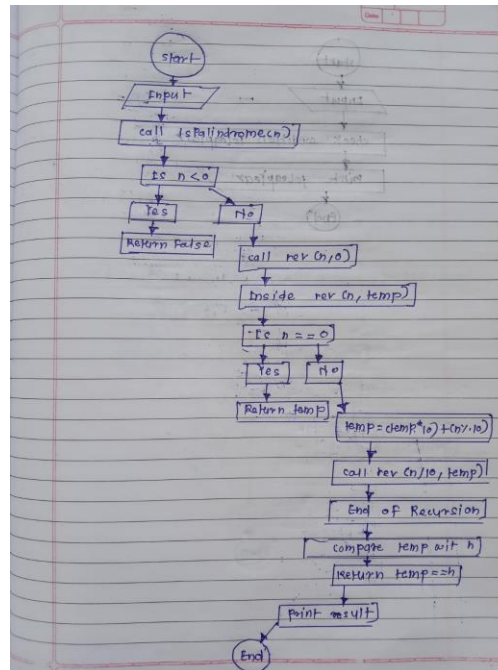 Date
Start
Input
call isPalindrome(n)
Is n < 0
Yes
No
Return False
call rev(n,0)
Inside rev(n, temp)
Is n == 0
Yes
No
Return temp
temp=(temp*10)+(n%10)
call rev(n/10, temp)
End of Recursion
compare temp wit n
Return temp==n
print result
End